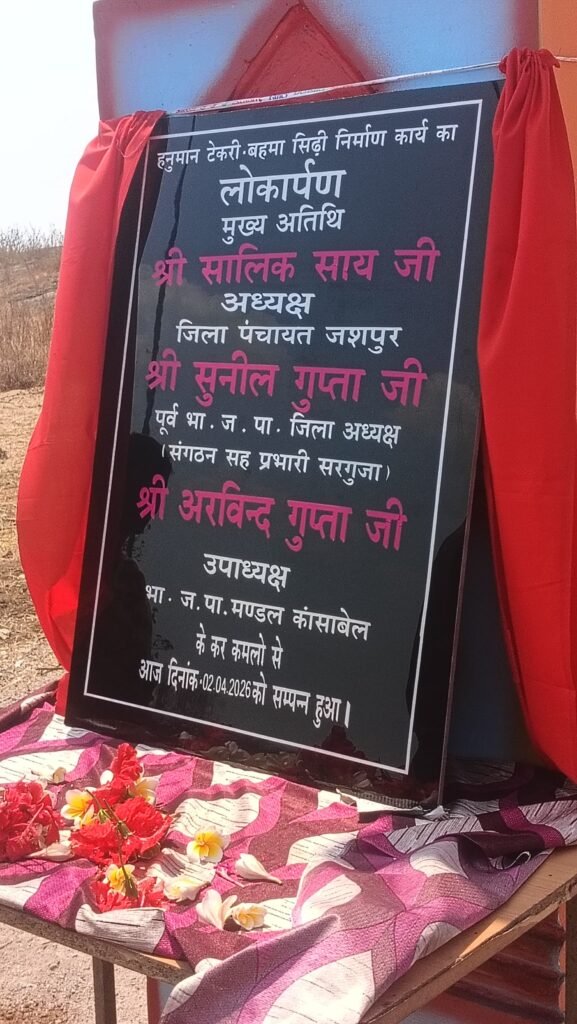 हनुमान टेकरी.बहमा सिढ़ी निर्माण कार्य का
लोकार्पण
मुख्य अतिथि
श्री सालिक साय जी
अध्यक्ष
जिला पंचायत जशपुर
श्री सुनील गुप्ता जी
पूर्व भा.ज.पा. जिला अध्यक्ष
(संगठन सह प्रभारी सरगुजा)
श्री अरविन्द गुप्ता जी
उपाध्यक्ष
भा.ज.पा.मण्डल कांसाबेल
के कर कमलो से
आज दिनांक.02.04.2026को सम्पन्न हुआ।